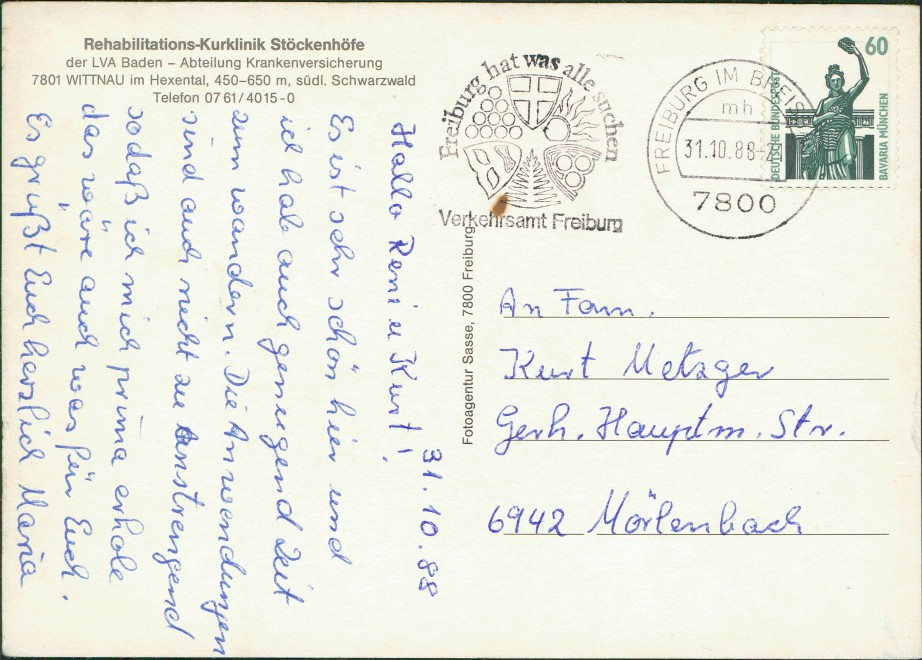 Rehabilitations-Kurklinik Stöckenhöfe
der LVA Baden – Abteilung Krankenversicherung
7801 WITTNAU im Hexental, 450–650 m, südl. Schwarzwald
Telefon 07 61/ 4015-0
31.10.88
Hallo Reni u Kurt!
Es ist sehr schön hier und
ich hab auch genügend Zeit
zum wandern. Die Anwendungen
sind auch nicht zu anstrengend
sodaß ich mich prima erhole
das wäre auch was für Euch.
Es grüßt Euch herzlich Maria
Fotoagentur Sasse, 7800 Freiburg
Freiburg hat was alle suchen
Verkehrsamt Freiburg
FREIBURG IM BREIS
mh
31.10.88-
7800
60
DEUTSCHE BUNDESPOST
BAVARIA MÜNCHEN
An Fam.
Kurt Metzger
Gerh. Hauptm. Str.
6942 Mörlenbach